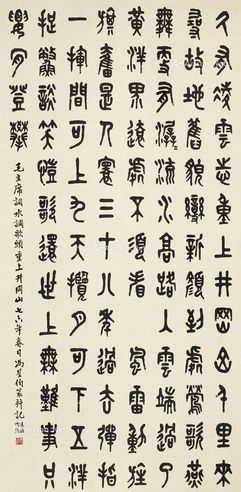 久有凌雲志重上井岡山千里來
尋故地舊貌變新顏到處鶯歌燕
舞更有潺潺流水高路入雲端過了
黃洋界險處不須看風雷動旌
旗奮是人寰三十八年過去彈指
一揮間可上九天攬月可下五洋
捉鱉談笑凱歌還世上無難事只
要肯登攀
毛主席詞水調歌頭重上井岡山七六年春日馮星伯篆并記